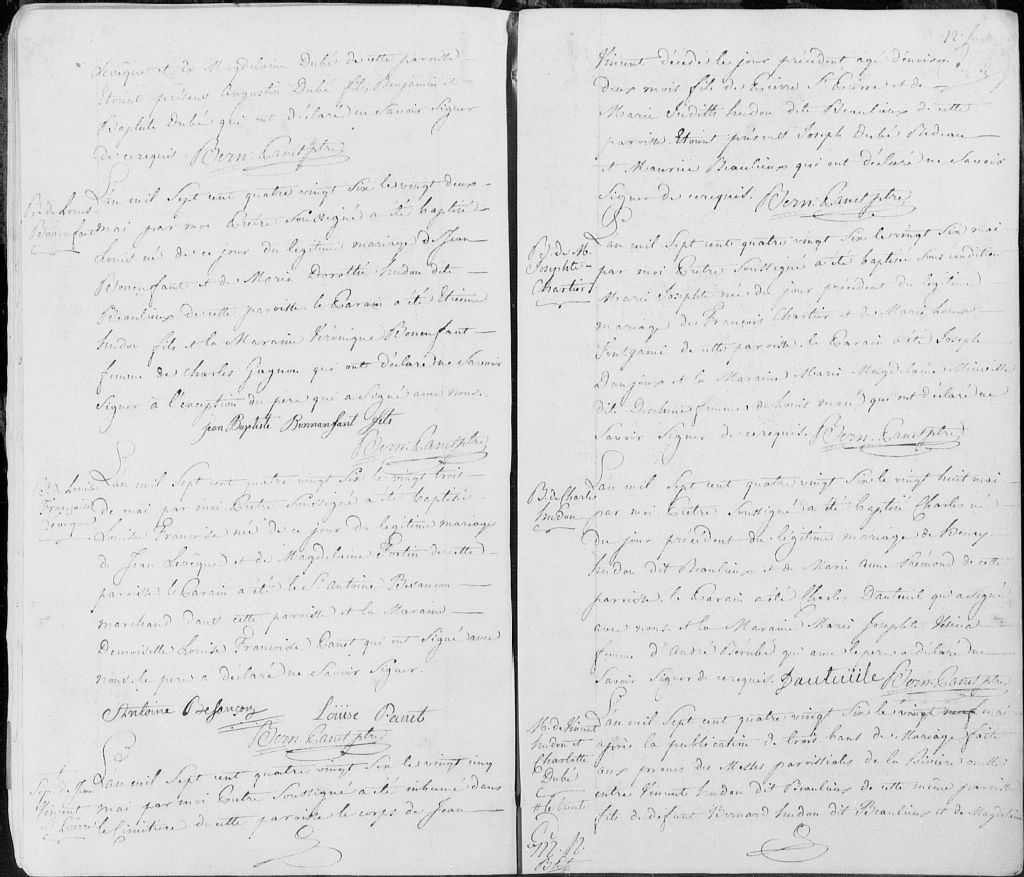 Levêque et de Magdelaine Dubé de cette paroisse
Etoint présens Augustin Dubé fils Benjamin et
Baptiste Dubé qui ont déclaré ne Savoir Signer
de ce requis. Bern: Panet ptre
B. de Louis
Bonenfant
L'an mil Sept cent quatre vingt Six le vingt deux
mai par moi Pretre Soussigné a été baptisé
Louis né de ce jour du legitime mariage de Jean
Bonenfant et de Marie Dorothée hudon dite
Beaulieux de cette paroisse. le Parain a été Etienne
hudon fils et la Maraine Véronique Bonenfant
femme de Charles Gagnon qui ont déclaré ne Savoir
Signer à l'exception du pere qui a Signé avec nous.
Jean Baptiste Bonnanfant fils
Bern: Panet ptre
B. Louise
Françoise
Leveque
L'an mil Sept cent quatre vingt Six le vingt trois
de mai par moi Pretre Soussigné a été baptisée
Louise Francoise née de ce jour du legitime mariage
de Jean Levêque et de Magdelaine Fortin de cette
paroisse le Parain a été le Sr. Antoine Besançon
marchand dans cette paroisse et la Maraine
Demoiselle Louise Francoise Panet qui ont Signé avec
nous. le pere a declaré ne Savoir Signer.
Antoine Besançon Louise Panet
Bern: Panet ptre
Sep. de Jean
Vincent
St Pierre
L'an mil Sept cent quatre vingt Six le vingt cinq
mai par moi Pretre Soussigné a été inhumé dans
le Cimitiere de cette paroisse le corps de Jean
12.
Vincent décédé le jour précédent agé d'environ
deux mois fils de Pierre St Pierre et de
Marie Judith hudon dite Beaulieux de cette
paroisse. Etoint présens Joseph Dubé Bedeau
et Maurice Beaulieux qui ont déclaré ne Savoir
Signer de ce requis. Bern: Panet ptre
B. de M.
Josephte
Chartier
L'an mil Sept cent quatre vingt Six le vingt Six mai
par moi Pretre Soussigné a été baptisée Sous condition
Marie Josephte née du jour précédent du legitime
mariage de François Chartier et de Marie Louise
de cette paroisse. le Parain a été Joseph
Danjoux et la Maraine Marie Magdelaine Miville
dite Dechene femme de Louis qui ont déclaré ne
Savoir Signer de ce requis. Bern: Panet ptre
B. de Charles
hudon
L'an mil Sept cent quatre vingt Six le vingt huit mai
par moi Pretre Soussigné a été baptisé Charles né
du jour précédent du légitime mariage de henry
hudon dit Beaulieux et de Marie Anne de cette
paroisse. le Parain a été Charles Dauteuil qui a Signé
avec nous. et la Maraine Marie Josephte
femme d'André Berubé qui avec le pere a déclaré ne
Savoir Signer de ce requis. Dauteuille Bern: Panet ptre
M. de Vincent
hudon et
Charlotte
Dubé
# le trente
M. N.
L'an mil Sept cent quatre vingt Six le vingt neuf mai
après la publication de trois bans de Mariage faite
aux prones des Messes paroissiales de la Riviere ouelle
entre Vincent hudon dit Beaulieux de cette même paroisse
fils de defunt Bernard hudon dit Beaulieux et de Magdelaine